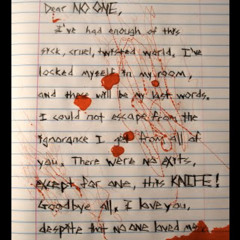 Dear NO ONE,
I've had enough of this
sick, cruel, twisted world, I've
locked myself in my room,
and these will be my last words.
I could not escape from the
ignorance I got from all of
you. There were no exits,
except for one, this KNIFE!
Goodbye all, I love you,
despite that no one loved me.